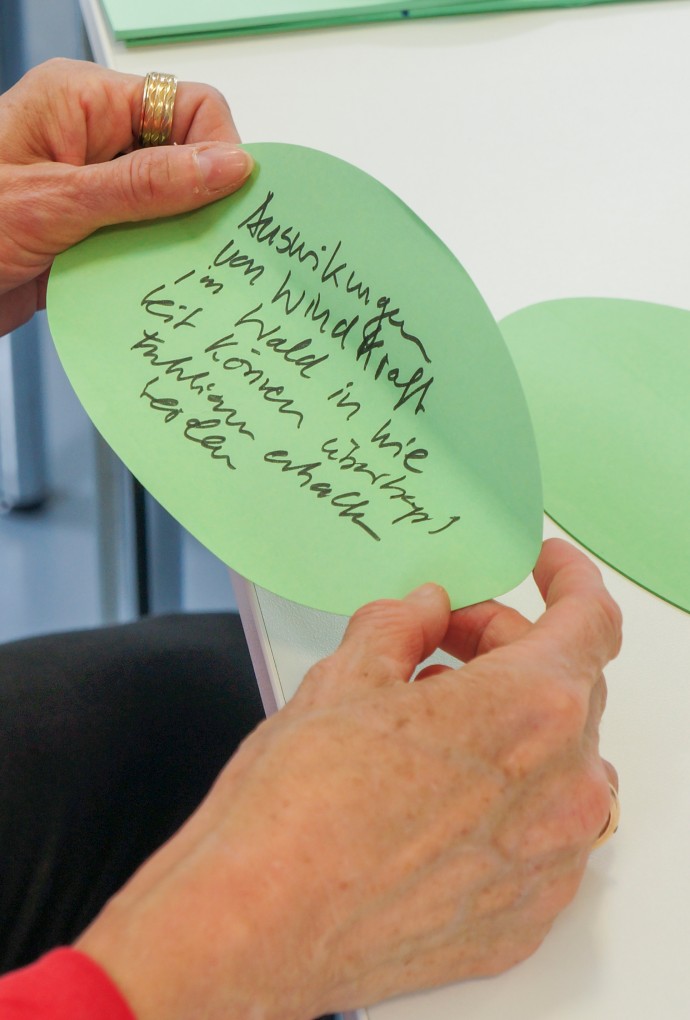 Auswikungen
von Windkraft
im Wald in wie
weit können überhapt
Funktionen erhalten
werden